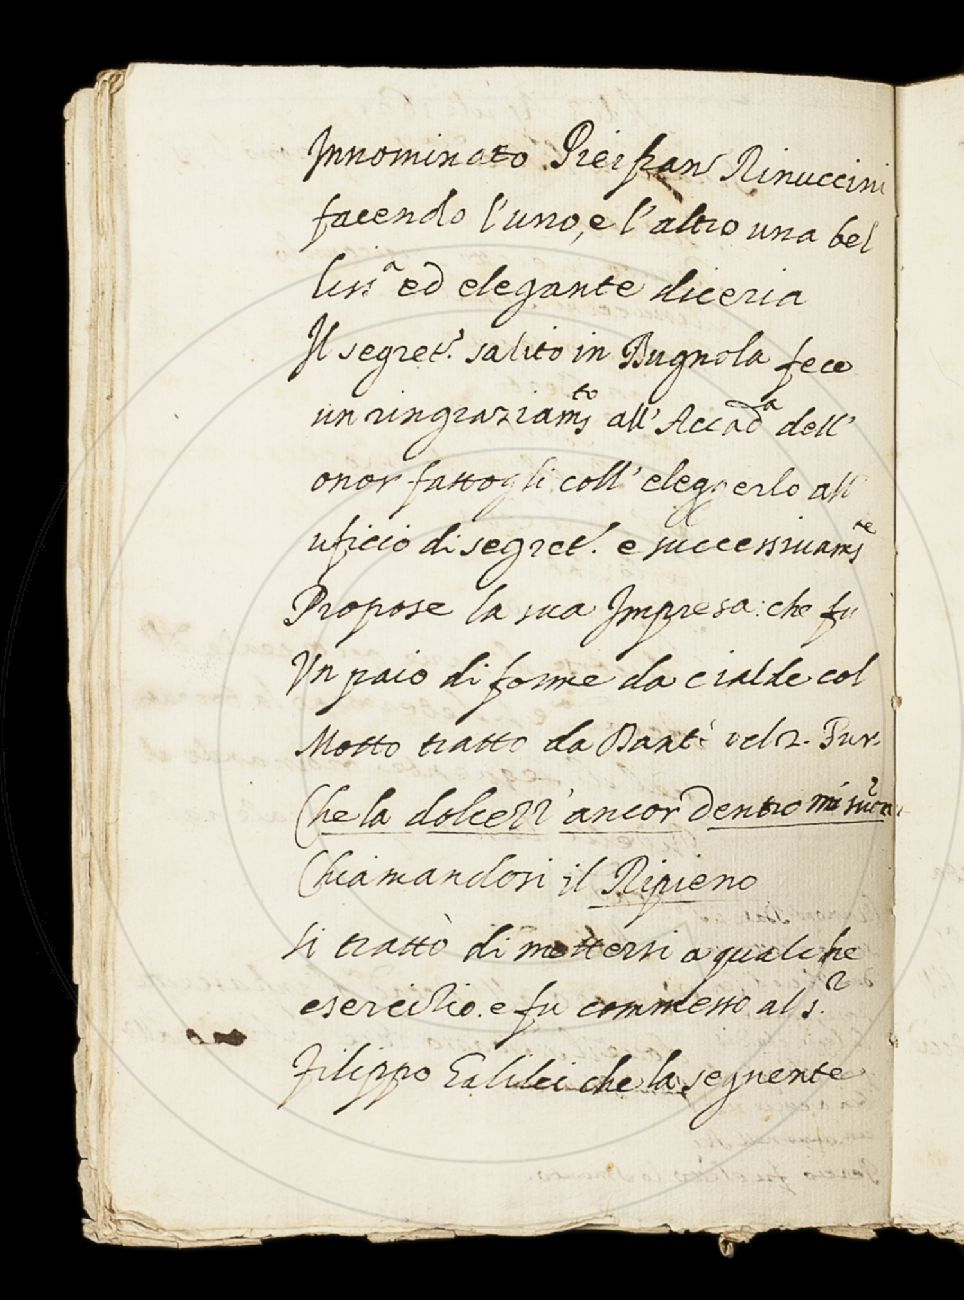 Innominato Pierfran Rinuccini
facendo l'uno, e l'altro una bel
liss.a ed elegante diceria
Il segret.o salito in Bugnola fece
un ringraziam.to all'Accad.a dell'
onor fattogli coll'elegerlo all'
uficio di segret. e successivam.te
Propose la sua Impresa: che fu
Un paio di forme da cialde col
Motto tratto da Dant. nel 2. Pur.
Che la dolcezz'ancor dentro mi suona
Chiamandosi il Ripieno
Si trattò di mettersi a qualche
esercizio. e fu commesso al S.r
Filippo Galilei che la seguente